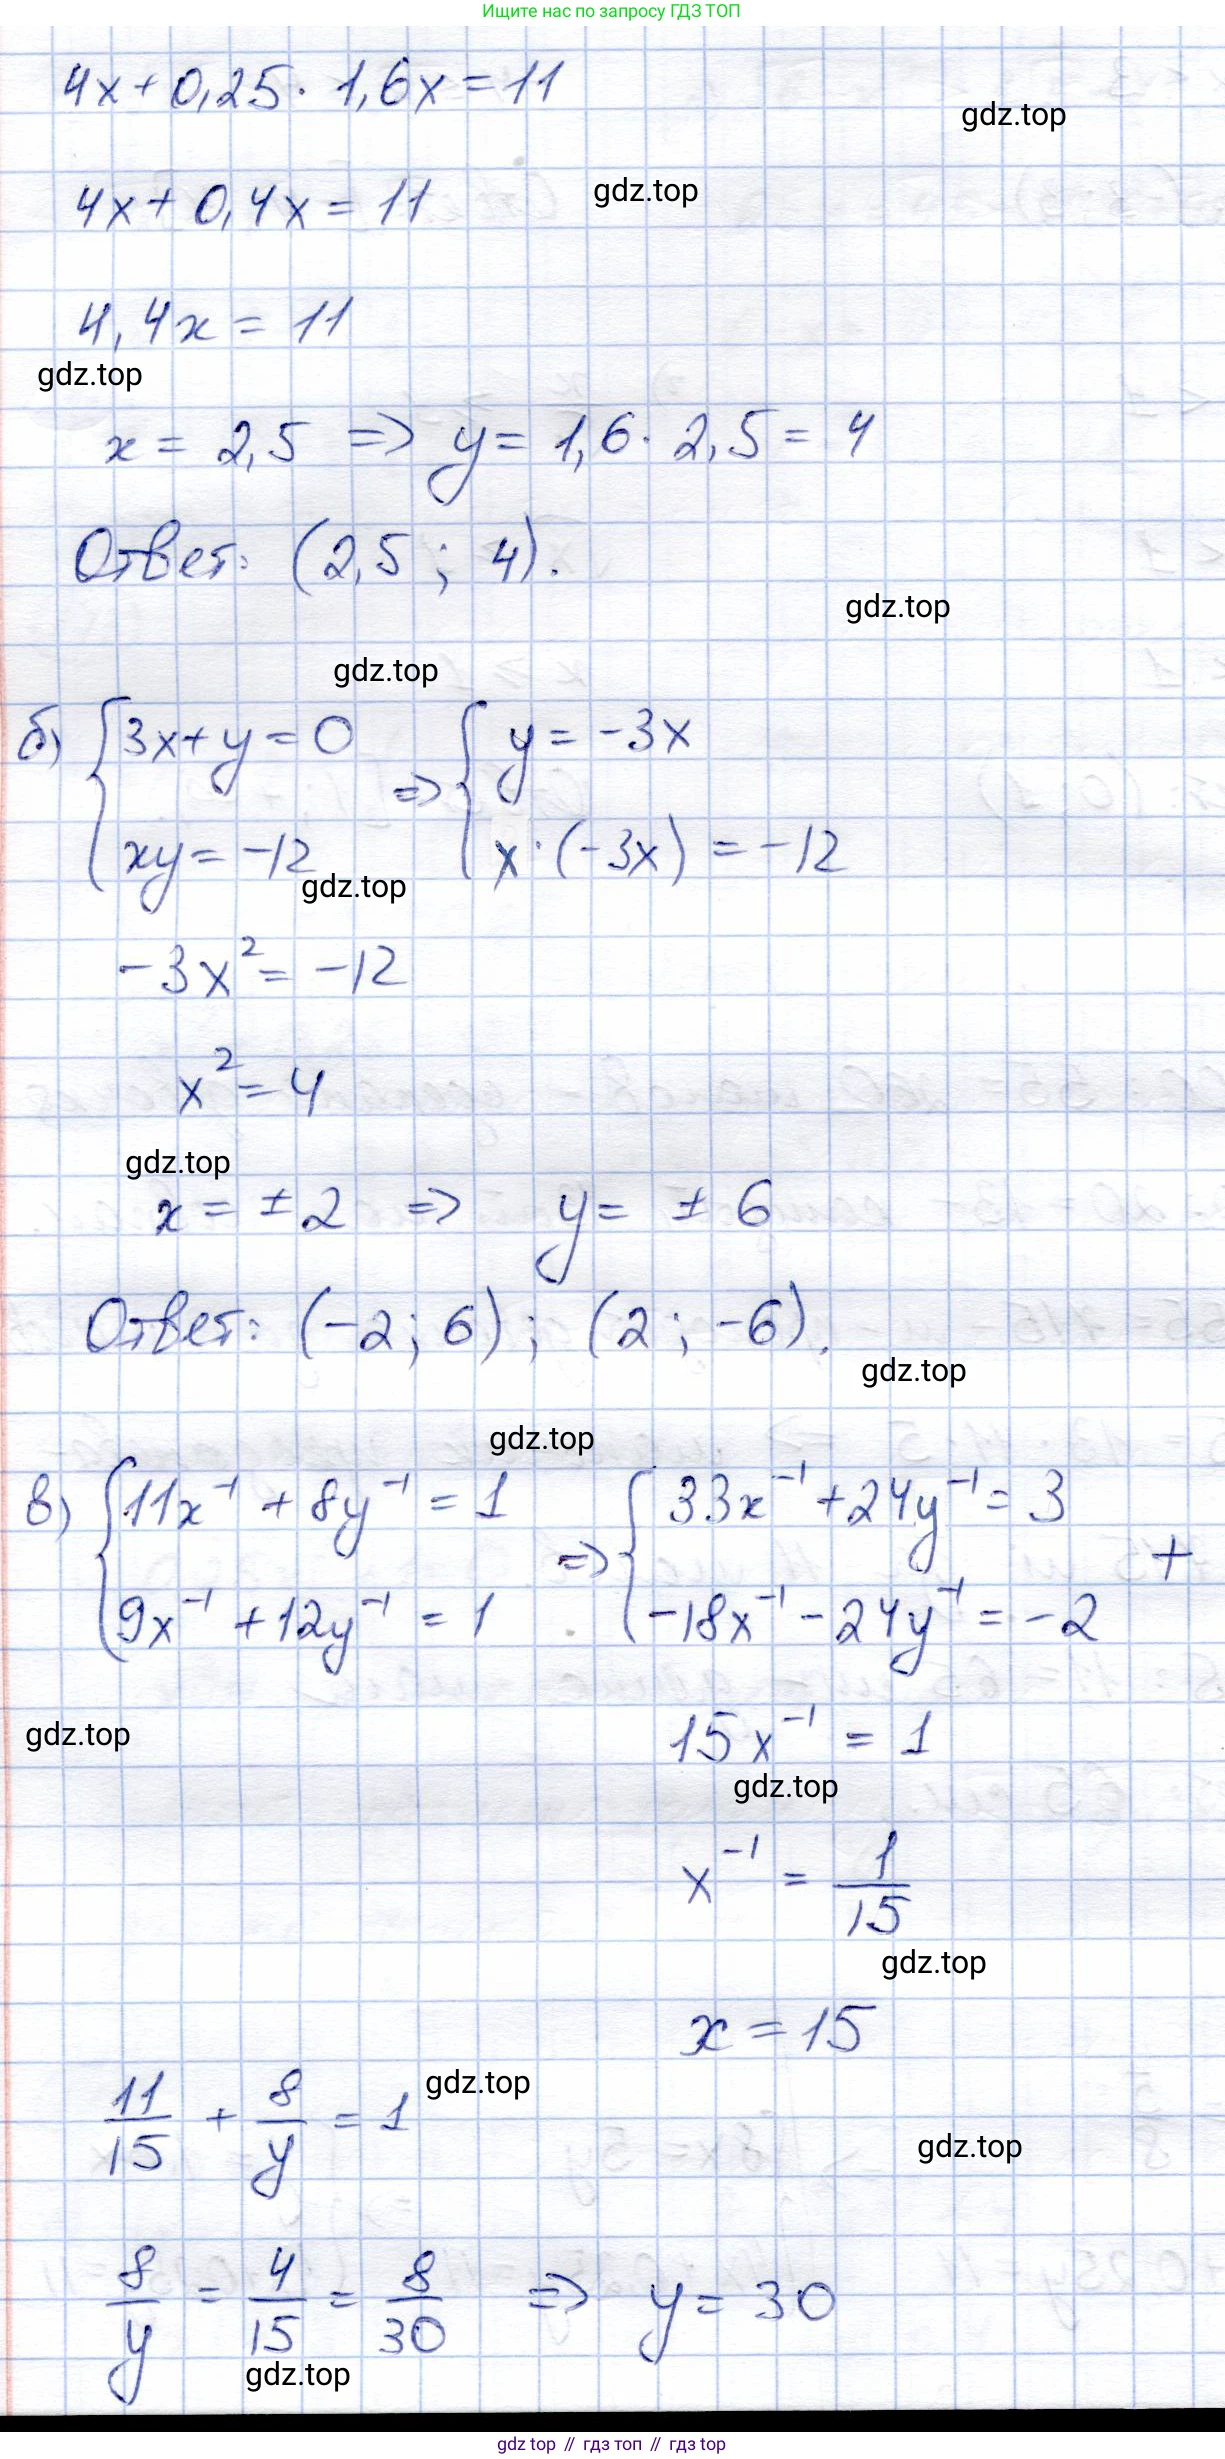 Ищите нас по запросу ГДЗ ТОП
4x + 0,25 · 1,6x = 11
gdz.top
4x + 0,4x = 11
gdz.top
4,4x = 11
gdz.top
x = 2,5 => y = 1,6 · 2,5 = 4
Ответ: (2,5 ; 4).
gdz.top
gdz.top
б) { 3x + y = 0 => { y = -3x
xy = -12 x · (-3x) = -12
gdz.top
-3x² = -12
x² = 4
gdz.top
x = ± 2 => y = ± 6
Ответ: (-2 ; 6) ; (2 ; -6).
gdz.top
gdz.top
в) { 11x⁻¹ + 8y⁻¹ = 1 => { 33x⁻¹ + 24y⁻¹ = 3 +
9x⁻¹ + 12y⁻¹ = 1 -18x⁻¹ - 24y⁻¹ = -2
gdz.top
15x⁻¹ = 1
gdz.top
x⁻¹ = 1/15
gdz.top
x = 15
gdz.top
11/15 + 8/y = 1
gdz.top
8/y = 4/15 = 8/30 => y = 30
gdz.top
gdz top // гдз топ // гдз top